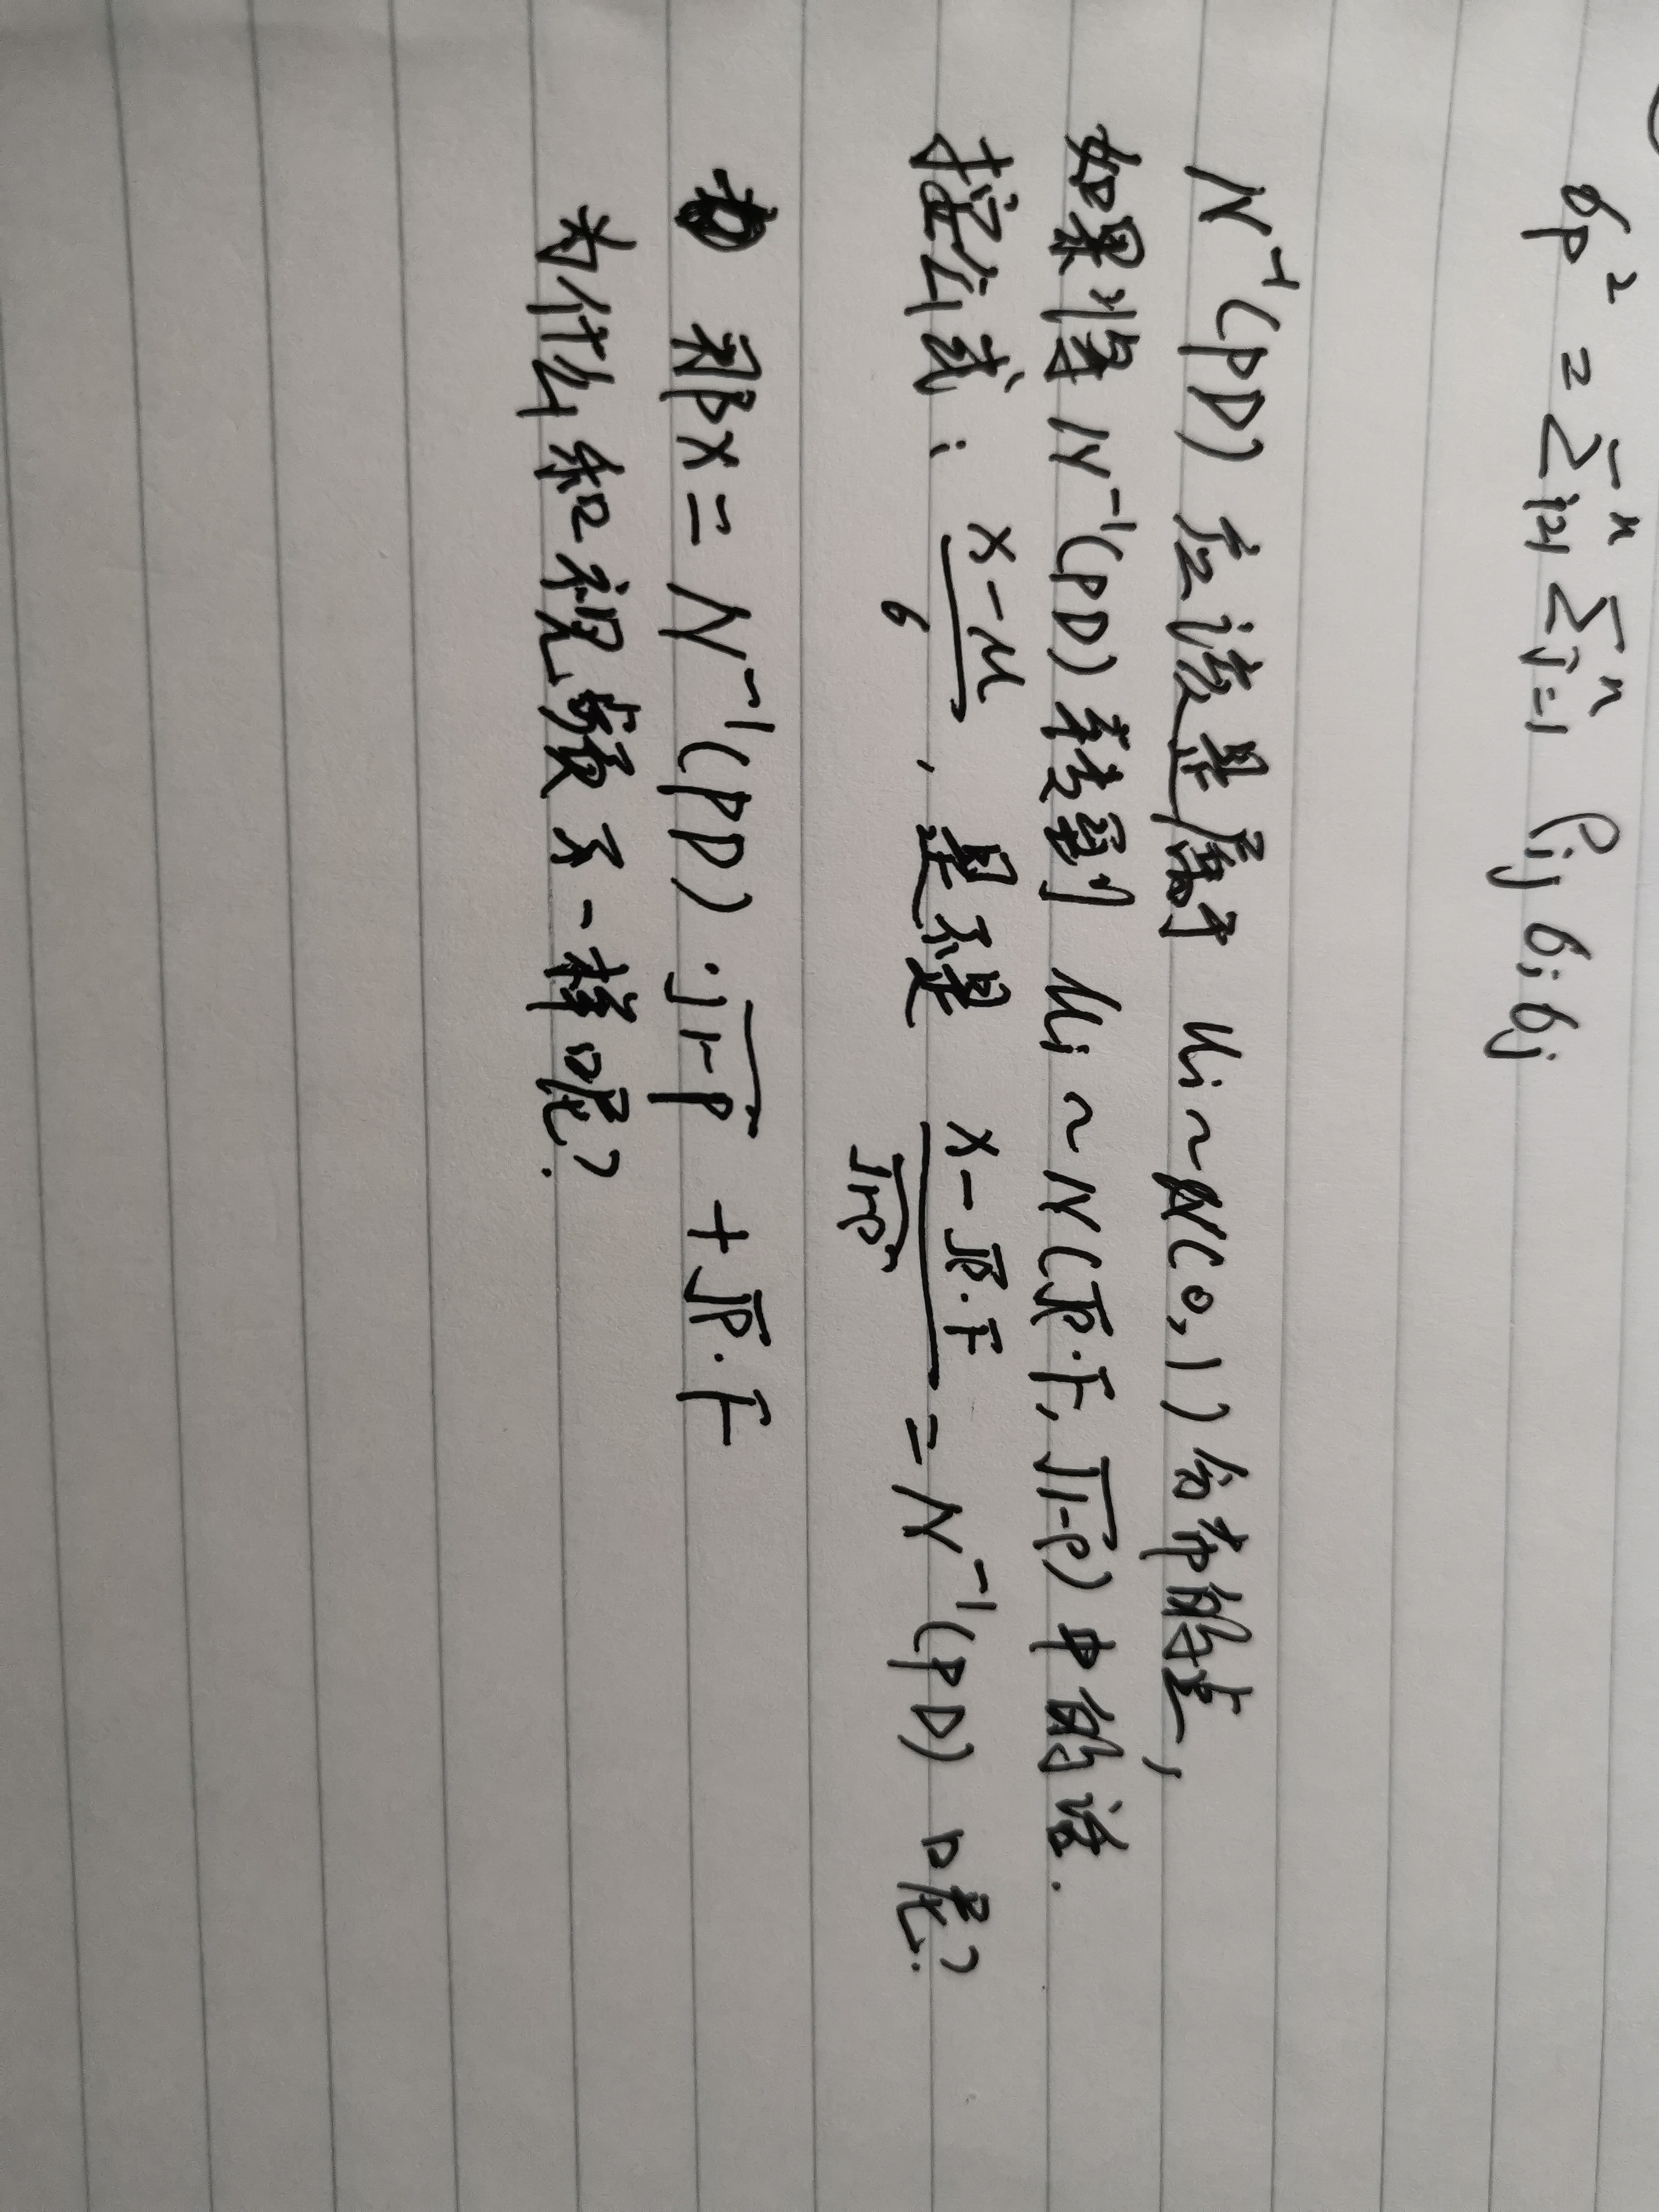 σp² = Σⁿᵢ₌₁ Σⁿⱼ₌₁ ρij σi σj
N⁻¹(PD) 应该是属于 Ui ~ N(0,1) 分布的点,
如果将 N⁻¹(PD) 转到 Ui ~ N(√ρ·F, √1-ρ) 中的话.
按公式: (x-μ)/σ , 是不是 (x-√ρ·F)/√1-ρ = N⁻¹(PD) 呢?
那x = N⁻¹(PD)·√1-ρ + √ρ·F
为什么和视频不一样呢?